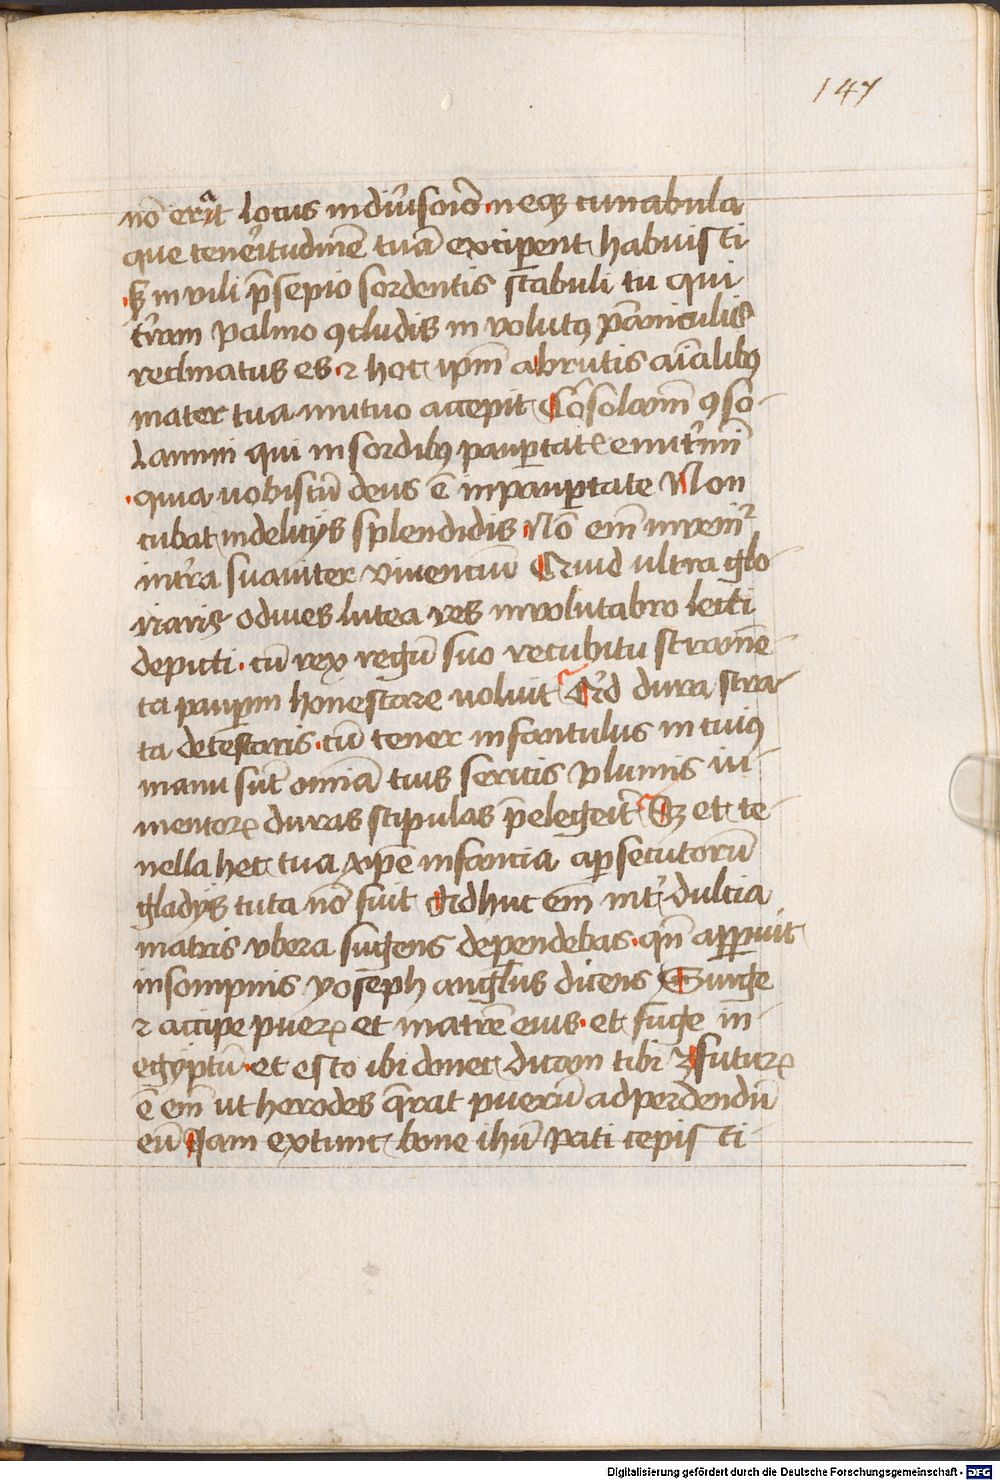 147
nō erat locus in diūsorio neqȝ cunabula
que teneritudinē tuā exciperent habuisti
sȝ in vili p̄sepio sordentis stabuli tu qui
t̄ram palmo ꝯcludis in volutꝰ panniculis
reclinatus es ⁊ hoc ipm̄ a brutis aīalibꝰ
mater tua mutuo accepit Cōsolamī ꝯso-
lamini qui in sordibꝰ paup̄tatis enutrimī
quia vobiscū deus ē in paup̄tate Non
cubat in delicijs splendidis Nō em̄ invenit᷑
in t̄ra suauiter viuenciū Quid ultra glo-
riaris o diues lutea res in volutabro lecti
depicti cū rex regū suo recubitu stramē-
ta paup̄um honestare voluit Qͥd dura stra-
ta detestaris cū tener infantulus in cuiꝰ
manu sūt omīa tuis sericis plumis iu-
mentoꝝ duras stipulas p̄elegerit Sȝ et te-
nella hec tua xp̄e infancia a ꝑsecutorū
gladijs tuta nō fuit Adhuc em̄ int᷑ dulcia
matris vbera sugens dependebas qn̄ apparuit
in sompnis yoseph angl̄us dicens Surge
⁊ accipe pueꝝ et matrē eius et fuge in
egyptū et esto ibi donec dicam tibi ⁊ futuꝝ
ē em̄ ut herodes q̄rat puerū ad perdendū
eū Iam extunc bone ihū pati cepisti
Digitalisierung gefördert durch die Deutsche Forschungsgemeinschaft - DFG